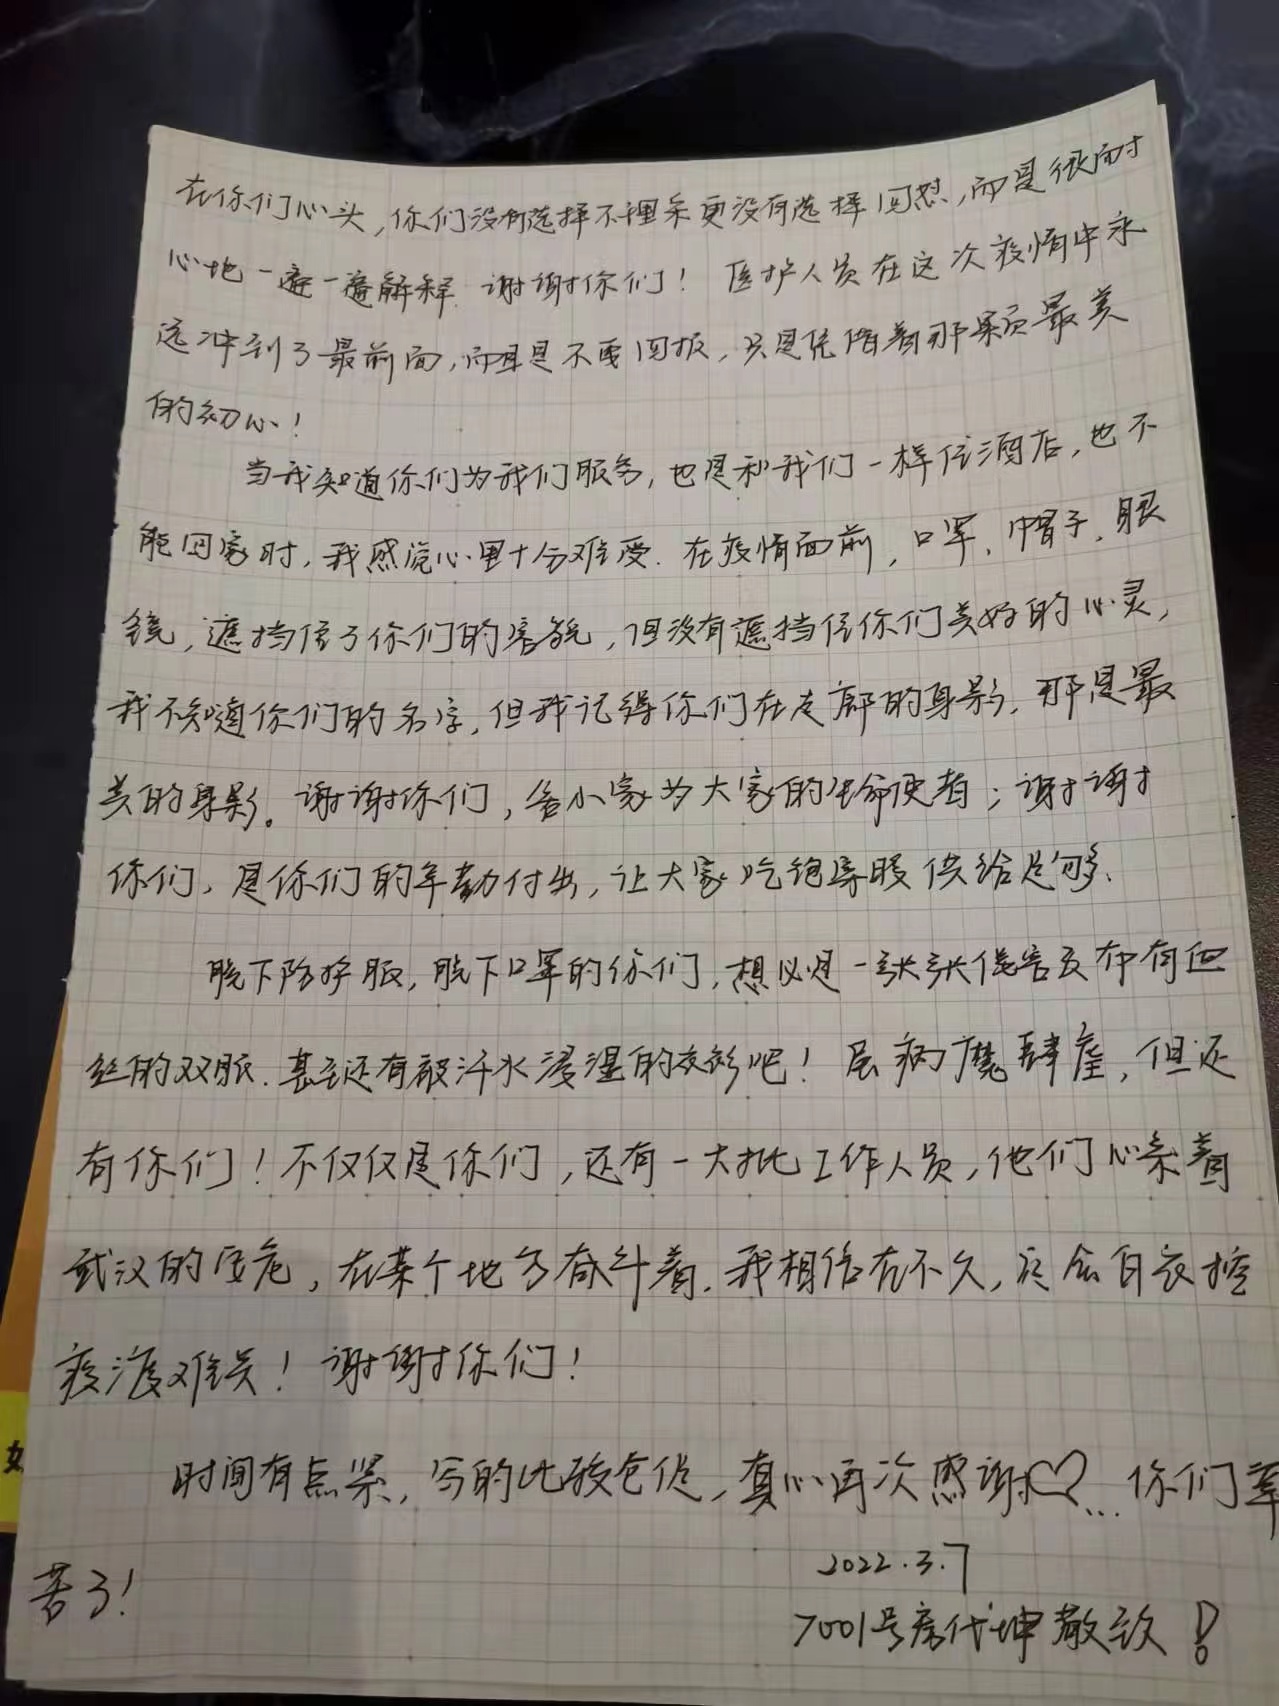 在你们心头，你们没有选择不理采更没有选择回怼，而是很耐
心地一遍一遍解释.谢谢你们！医护人员在这次疫情中永
远冲到了最前面，而且是不要回报，只是凭借着那颗最美
的初心！
当我知道你们为我们服务，也是和我们一样住酒店，也不
能回家时，我感觉心里十分难受.在疫情面前，口罩、帽子、眼
镜，遮挡住了你们的容貌，但没有遮挡住你们美好的心灵，
我不知道你们的名字，但我记得你们在走廊的身影，那是最
美的身影。谢谢你们，舍小家为大家的生命使者；谢谢
你们，是你们的辛勤付出，让大家吃饱穿暖供给足够.
脱下防护服，脱下口罩的你们，想必是一张张倦容及布有血
丝的双眼.甚至还有被汗水浸湿的衣衫吧！虽病魔肆虐，但还
有你们！不仅仅是你们，还有一大批工作人员，他们心系着
武汉的安危，在某个地方奋斗着.我相信在不久，定会白衣控
疫渡难关！谢谢你们！
时间有点紧，写的比较仓促，真心再次感谢♡...你们辛
苦了！
2022.3.7
7001号房代坤敬致！